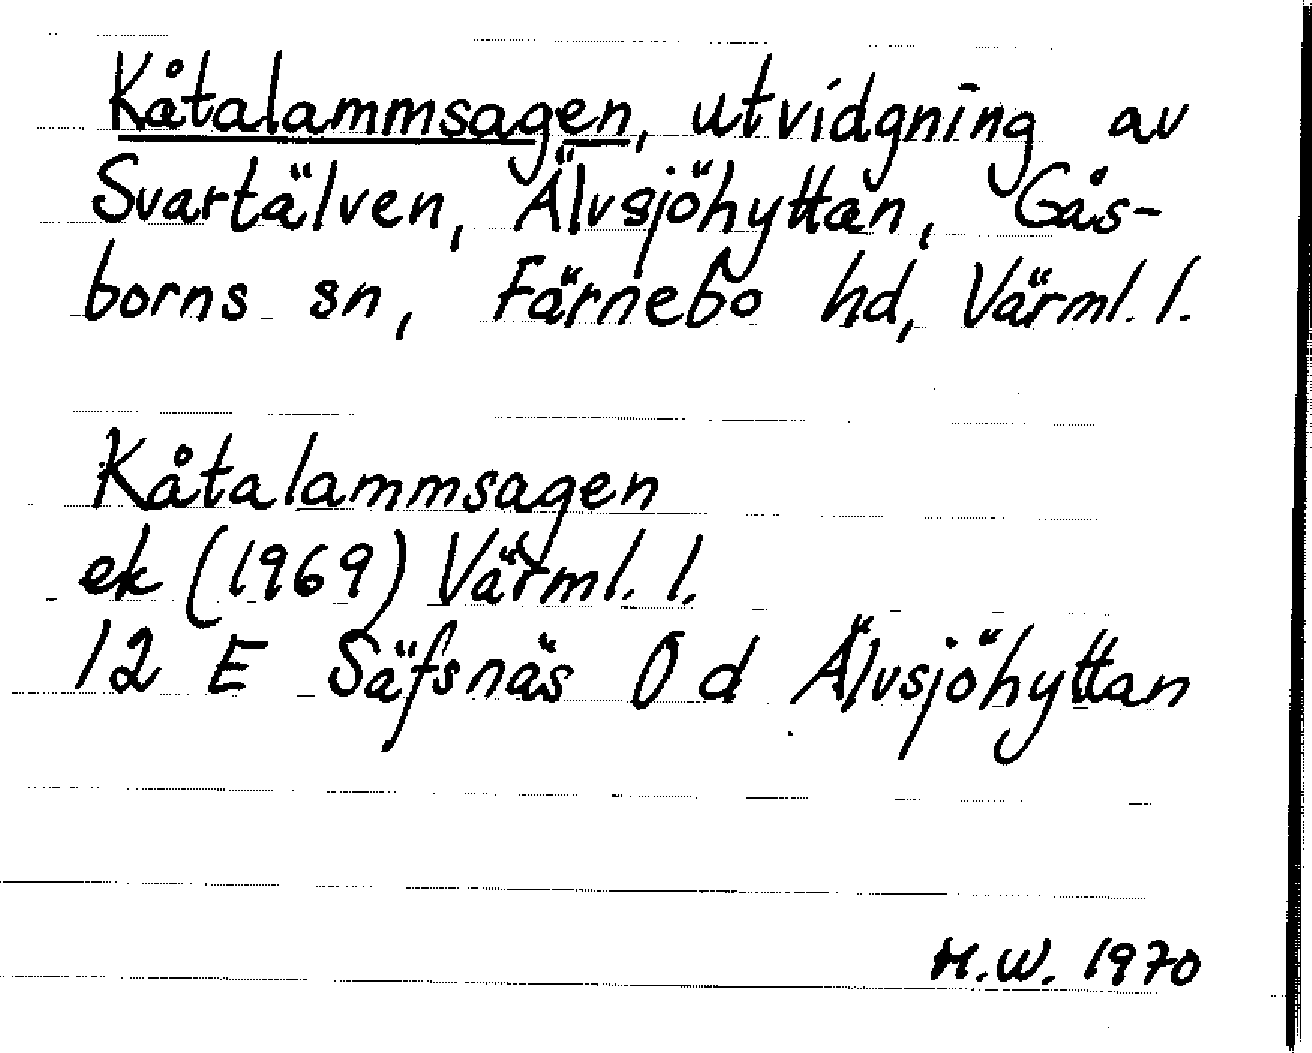 Kåtalammsagen, utvidgning av
Svartälven, Älvsjöhyttan, Gås-
borns sn, Färnebo hd, Värml. l.
Kåtalammsagen
ek (1969) Värml. l.
12 E Säfsnäs 0 d Älvsjöhyttan
M.W. 1970